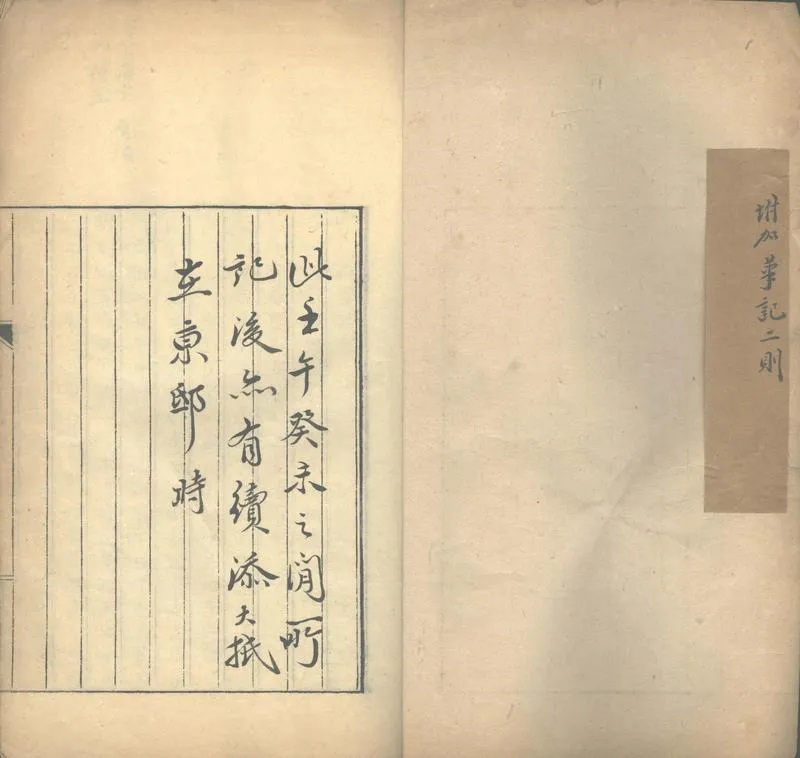 坿加筆記二則
此壬午癸未之間所
記後亦有續添大抵
在京邸時